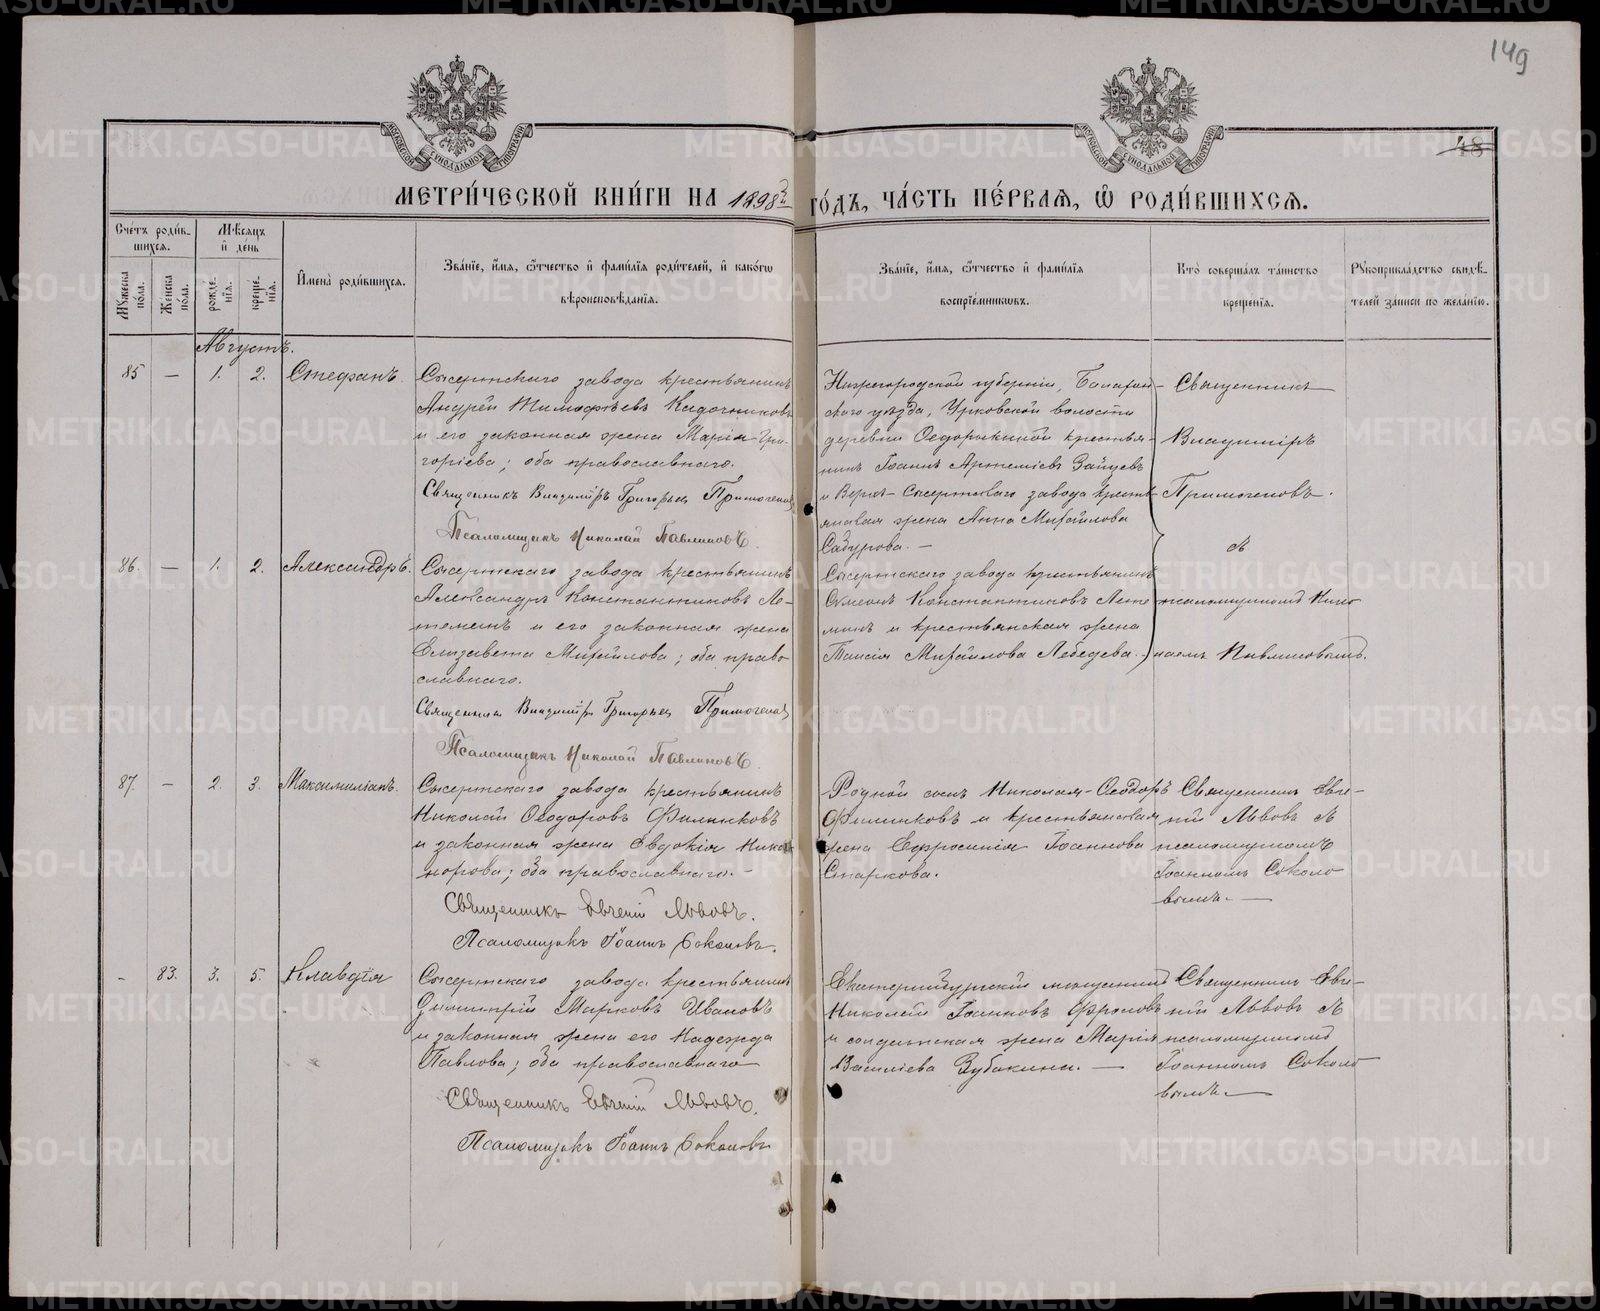 149
48
МЕТРИ́ЧЕСКОЙ КНИ́ГИ НА 1898 ГО́ДЪ, ЧА́СТЬ ПЕ́РВАѦ, Ѡ҆ РОДИ́ВШИХСѦ.
Сче́тъ роди́в-
шихсѧ.
Мѣ́сѧцъ
и҆ де́нь
Мꙋ́жеска
по́ла.
Же́нска
по́ла.
рожде́-
нїѧ.
креще́-
нїѧ.
И҆мена̀ роди́вшихсѧ.
Зва́нїе, и҆́мѧ, ѻ҆́тчество и҆ фами́лїѧ роди́телей, и҆ како́гѡ
вѣроисповѣ́данїѧ.
Зва́нїе, и҆́мѧ, ѻ҆́тчество и҆ фами́лїѧ
воспрїе́мникѡвъ.
Кто̀ соверша́лъ та́инство
креще́нїѧ.
Рꙋкоприкла́дство свидѣ́-
телей за́писи по жела́нїю.
Августъ.
85 — 1. 2. Стефанъ.
Сысертскаго завода крестьянинъ
Андрей Тимофѣевъ Кадочниковъ
и его законная жена Марія Гри-
горіева; оба православнаго.
Священникъ Владиміръ Григорьев Примогенов
Псаломщикъ Николай Павлиновъ.
Нижегородской губерніи,
скаго уѣзда, Урковской волости
деревни Ѳедорихиной крестья-
нинъ Іоаннъ Артеміевъ Зайцевъ
и Верх-Сысертскаго завода кресть-
янская жена Анна Михайлова
Сабурова. —
Священникъ
Владиміръ
Примогеновъ.
съ
псаломщикомъ Нико
лаемъ Павлиновымъ.
86. — 1. 2. Александръ.
Сысертскаго завода крестьянинъ
Александръ Константиновъ Ле-
теминъ и его законная жена
Елизавета Михайлова; оба право
славнаго.
Священникъ Владиміръ Григорьев Примогенов
Псаломщикъ Николай Павлиновъ.
Сысертскаго завода крестьянинъ
Сѵмеонъ Константиновъ Лете
минъ и крестьянская жена
Таисія Михайлова Лебедева.
87. — 2. 3. Максимиліанъ.
Сысертскаго завода крестьянинъ
Николай Ѳеодоровъ Филинковъ
и законная жена Евдокія Ника
норова; оба православнаго. —
Священникъ Евгеній Львовъ.
Псаломщикъ Іоаннъ Соколовъ.
Родной сынъ Николая-Ѳеодоръ
Филинковъ и крестьянская
жена Ефросинія Іоаннова
Старкова.
Священникъ Евге-
ній Львовъ съ
псаломщикомъ
Іоанномъ Соколо
вымъ. —
- 83. 3. 5. Клавдія
Сысертскаго завода крестьянинъ
Димитрій Марковъ Ивановъ
и законная жена его Надежда
Павлова; оба православнаго
Священникъ Евгеній Львовъ.
Псаломщикъ Іоаннъ Соколовъ
Екатеринбургскій мѣщанинъ
Николай Іоанновъ Фроловъ
и солдатская жена Марія
Василіева Зубакина. —
Священникъ Евге-
ній Львовъ съ
псаломщикомъ
Іоанномъ Соколо
вымъ. —
METRIKI.GASO-URAL.RU